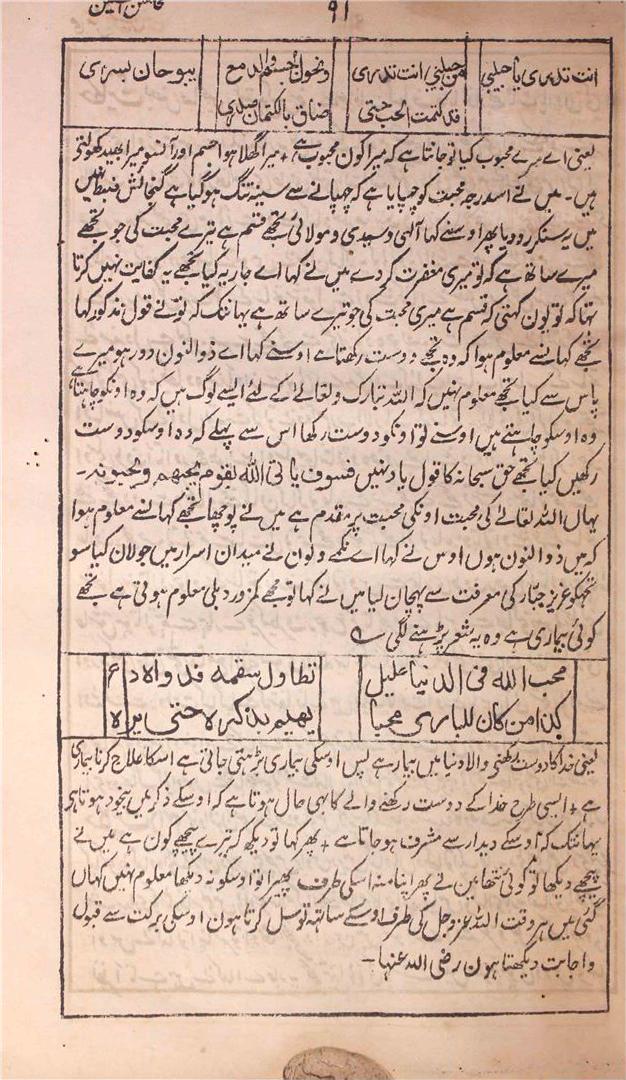 ۹۱
انت تدری یا حبیبی من حبیبی انت تدری ونحول الجسم والدمع یبوحان بسری
قد کتمت الحب حتی ضاق بالکتمان صدری
یعنی اے میرے محبوب کیا تو جانتا ہے کہ میرا کون محبوب ہے + میرا گھلا ہوا جسم اور آنسو میرا بھید کھولتی
ہیں۔ میں نے اسدرجہ محبت کو چھپایا ہے کہ چھپانے سے سینہ تنگ ہوگیا ہے گنجائش ضبط نہیں
میں یہ سنکر رودیا پھر اوسنے کہا آلہی وسیدی ومولائی تجھے قسم ہے تیرے محبت کی جو تجھے
میرے ساتھ ہے کہ تو میری مغفرت کردے میں نے کہا اے جاریہ کیا تجھے یہ کفایت نہیں کرتا
تہا کہ تو یون کہتی کہ قسم ہے میری محبت کی جو تیرے ساتھ ہے یہانتک کہ تو نے قول مذکور کہا
تجھے کہانسے معلوم ہوا کہ وہ تجھے دوست رکھتا ہے اوسنے کہا اے ذوالنون دور ہو میرے
پاس سے کیا تجھے معلوم نہیں کہ اللہ تبارک وتعالےٰ کے لئے ایسے لوگ ہیں کہ وہ اونکو چاہتا ہے
وہ اوسکو چاہتے ہیں اوسنے تو اونکو دوست رکھا اس سے پہلے کہ وہ اوسکو دوست
رکھیں کیا تجھے حق سبحانہ کا قول یاد نہیں فسوف یاتی اللہ بقوم یحبھم ویحبونہ۔
یہاں اللہ تعالےٰ کی محبت اونکی محبت پر مقدم ہے میں نے پوچھا تجھے کہانسے معلوم ہوا
کہ میں ذوالنون ہوں اوس نے کہا اے نکمے دلون نے میدان اسرار میں جولان کیا سو
تجھکو عزیز جبّار کی معرفت سے پہچان لیا میں نے کہا تو مجھے کمزور دبلی معلوم ہوتی ہے تجھے
کوئی بیماری ہے وہ یہ شعر پڑہنے لگی ؎
محب اللہ فی الدنیا علیل تطاول سقمہ فدواہ داء
کذا من کان للباری محبا یھیم بذکرہ حتی یراہ
یعنی خدا کا دوست رکھنی والا دنیا میں بیمار ہے پس اوسکی بیماری بڑہتی جاتی ہے اسکا علاج کرنا بیماری
ہے + ایسی طرح خدا کے دوست رکھنے والے کا یہی حال ہوتا ہے کہ اوسکے ذکر میں بیخود ہوتا ہی
یہانتک کہ اوسکے دیدار سے مشرف ہوجاتا ہے + پھر کہا تو دیکھ کہ تیرے پیچھے کون ہے میں نے
پیچھے دیکھا تو کوئی نتھا میں نے پھر اپنا منہ اسکی طرف پھیرا تو اوسکو نہ دیکھا معلوم نہیں کہاں
گئی میں ہر وقت اللہ عزوجل کی طرف اوسکے ساتھ توسل کرتا ہون اوسکی برکت سے قبول
واجابت دیکھتا ہون رضی اللہ عنہا۔